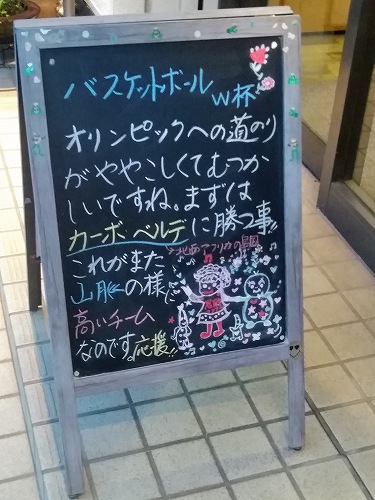 バスケットボール
W杯
オリンピックへの道のり
がややこしくてむつか
しいですね。まずは
カーボベルデに勝つ事!!
これがまた
山脈の様に
高いチーム
なのです。応援!!